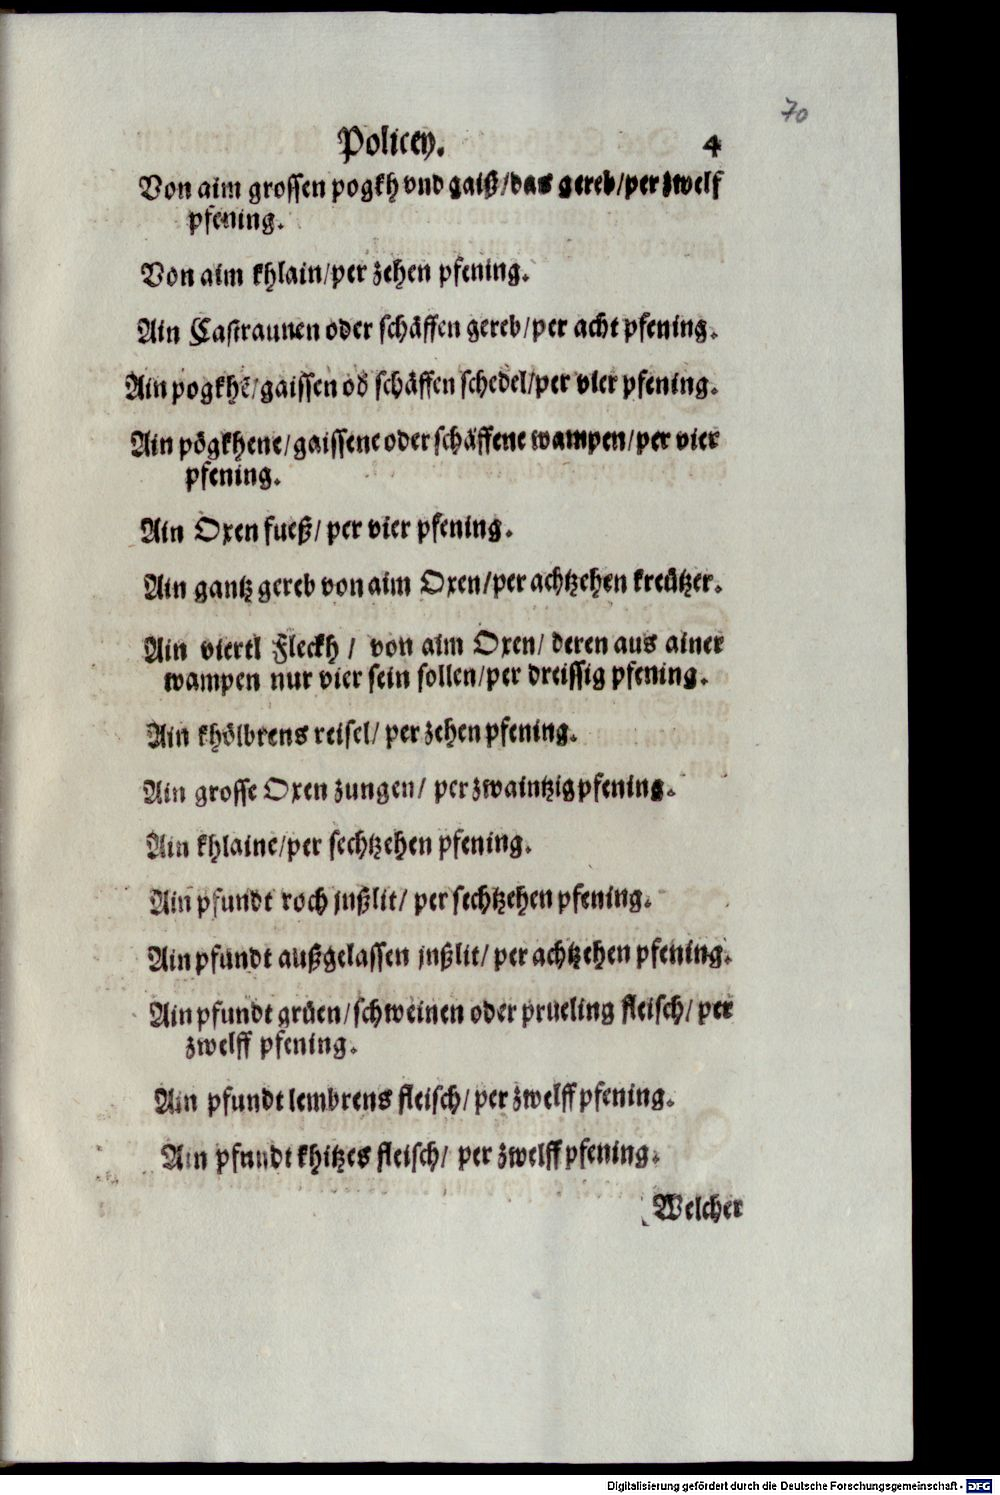 70
Policey. 4
Von aim grossen pogkh vnd gaiß/das gereb/per zwelf
pfening.
Von aim khlain/per zehen pfening.
Ain Castraunen oder schäffen gereb/per acht pfening.
Ain pogkhē/gaissen od schäffen schedel/per vier pfening.
Ain pögkhene/gaissene oder schäffene wampen/per vier
pfening.
Ain Oxen fueß/ per vier pfening.
Ain gantz gereb von aim Oxen/per achtzehen kreützer.
Ain viertl Fleckh / von aim Oxen/ deren aus ainer
wampen nur vier sein sollen/per dreissig pfening.
Ain khölbrens reisel/ per zehen pfening.
Ain grosse Oxen zungen/ per zwaintzig pfening.
Ain khlaine/per sechtzehen pfening.
Ain pfundt roch jnßlit/ per sechtzehen pfening.
Ain pfundt außgelassen jnßlit/ per achtzehen pfening.
Ain pfundt grüen/schweinen oder prueling fleisch/ per
zwelff pfening.
Ain pfundt lembrens fleisch/ per zwelff pfening.
Ain pfundt khitzes fleisch/ per zwelff pfening.
Welcher
Digitalisierung gefördert durch die Deutsche Forschungsgemeinschaft - DFG